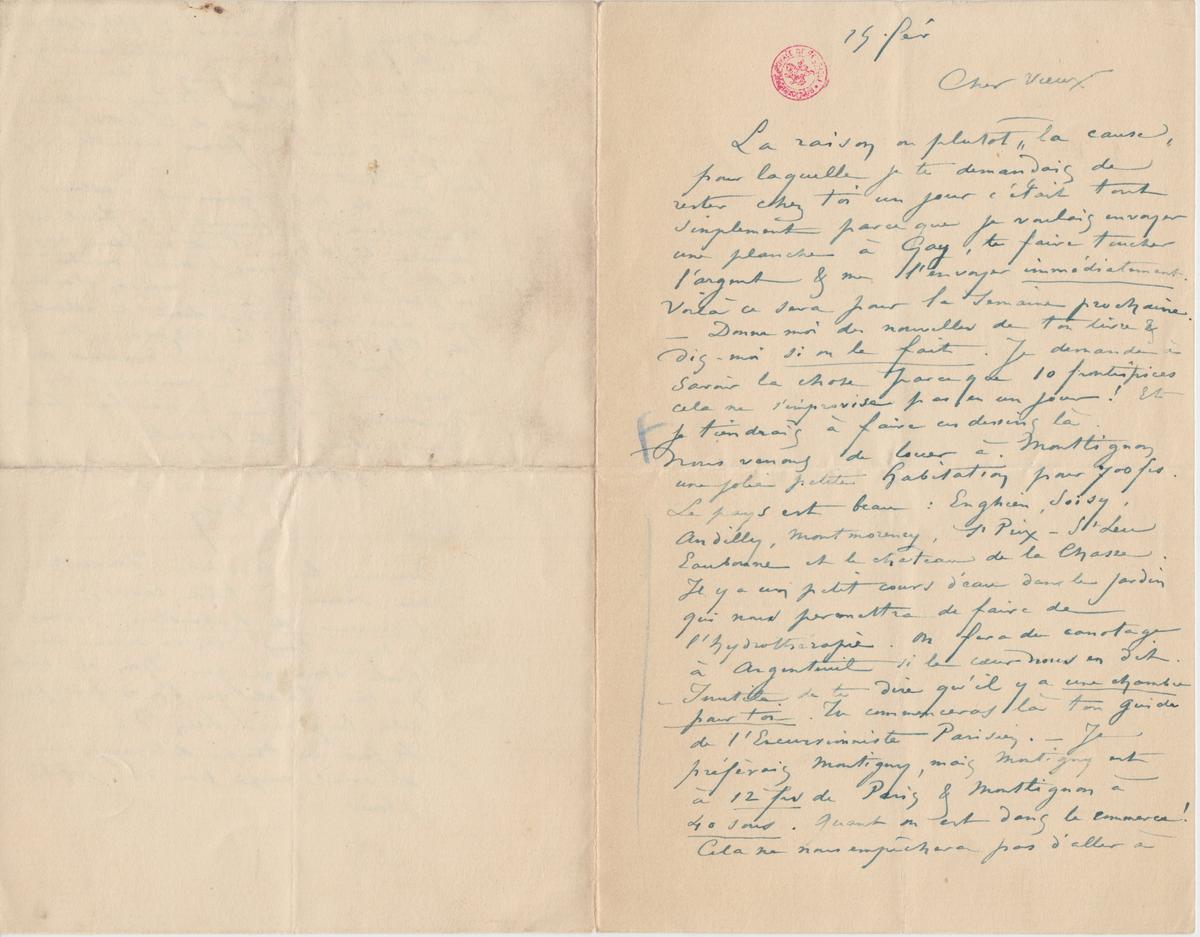 15. fév
Cher vieux
La raison ou plutôt „la cause„
pour laquelle je te demandais de
rester chez toi un jour c'était tout
simplement parce que je voulais envoyer
une planche à Gay, te faire toucher
l'argent & me l'envoyer immédiatement.
Voilà ce sera pour la semaine prochaine.
— Donne moi des nouvelles de ton livre &
dis-moi si on le fait. Je demande à
savoir la chose parceque 10 frontispices
cela ne s'improvise pas en un jour! Et
je tiendrais à faire ces dessins là.
Nous venons de louer à Montlignon
une jolie petite habitation pour 700 frs.
Le pays est beau : Enghien, Soisy,
Andilly, Montmorency, St Prix – St Leu
Eaubonne et le château de la Chasse.
Il y a un petit cours d'eau dans le jardin
qui nous permettra de faire de
l'hydrothérapie. On fera du canotage
à Argenteuil si le cœur nous en dit.
– Inutile de te dire qu'il y a une chambre
pour toi. Tu commenceras là ton guide
de l'Excursionniste Parisien. – Je
préférais Montigny, mais Montigny est
à 12 frs de Paris & Montlignon à
40 sous. Quand on est dans le commerce!
Cela ne nous empêchera pas d'aller à